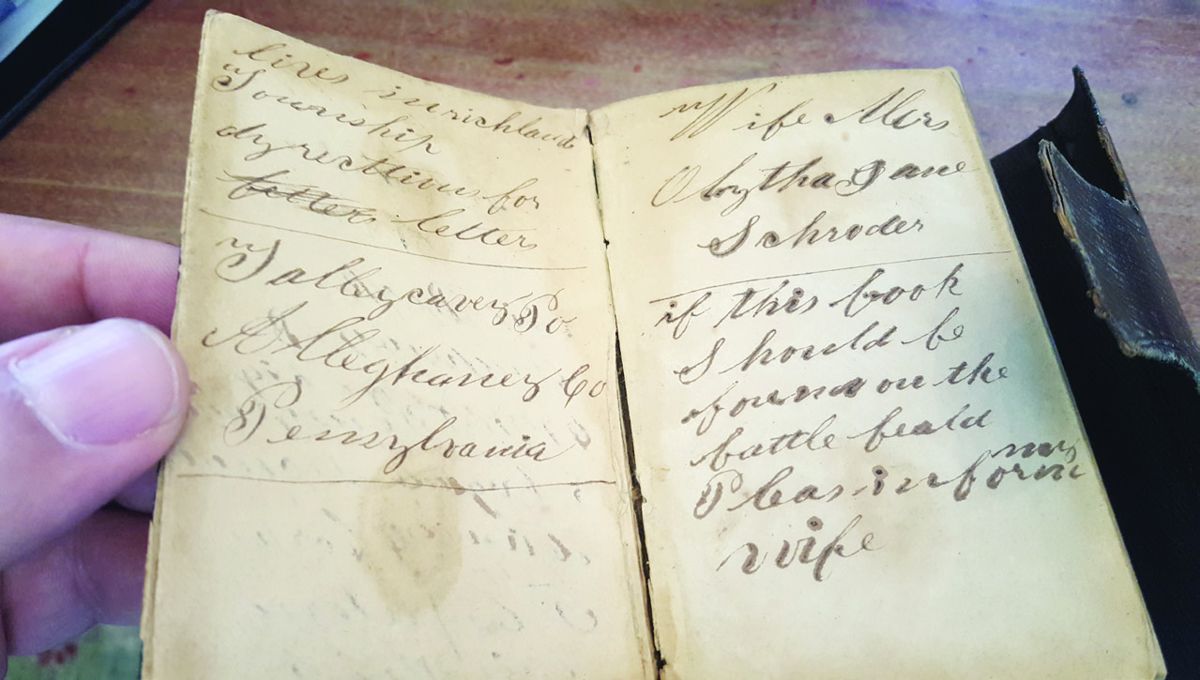 lives in richland
Township
dyrections for
letter letter
Tallycavey Po
Alleghaney Co
Pennsylvania
Wife Mrs
Jane
Schroder
if this book
Should be
found on the
battle feald
Pleas inform my
wife